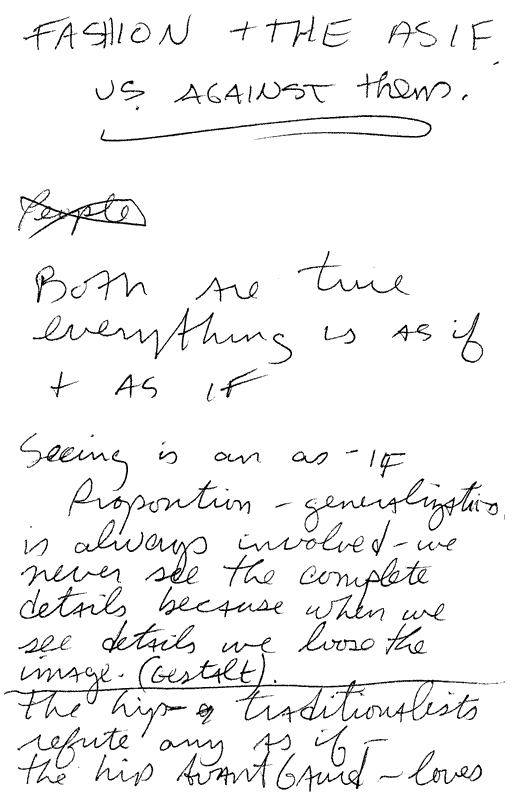 FASHION + THE AS IF
US AGAINST them.
People
Both are true
everything is as if
+ AS IF
Seeing is an as-IF
Proportion - generalization
is always involved - we
never see the complete
details because when we
see details we loose the
image. (Gestalt).
The hip traditionalists
refute any as if -
the hip Avant Gaurd - loves